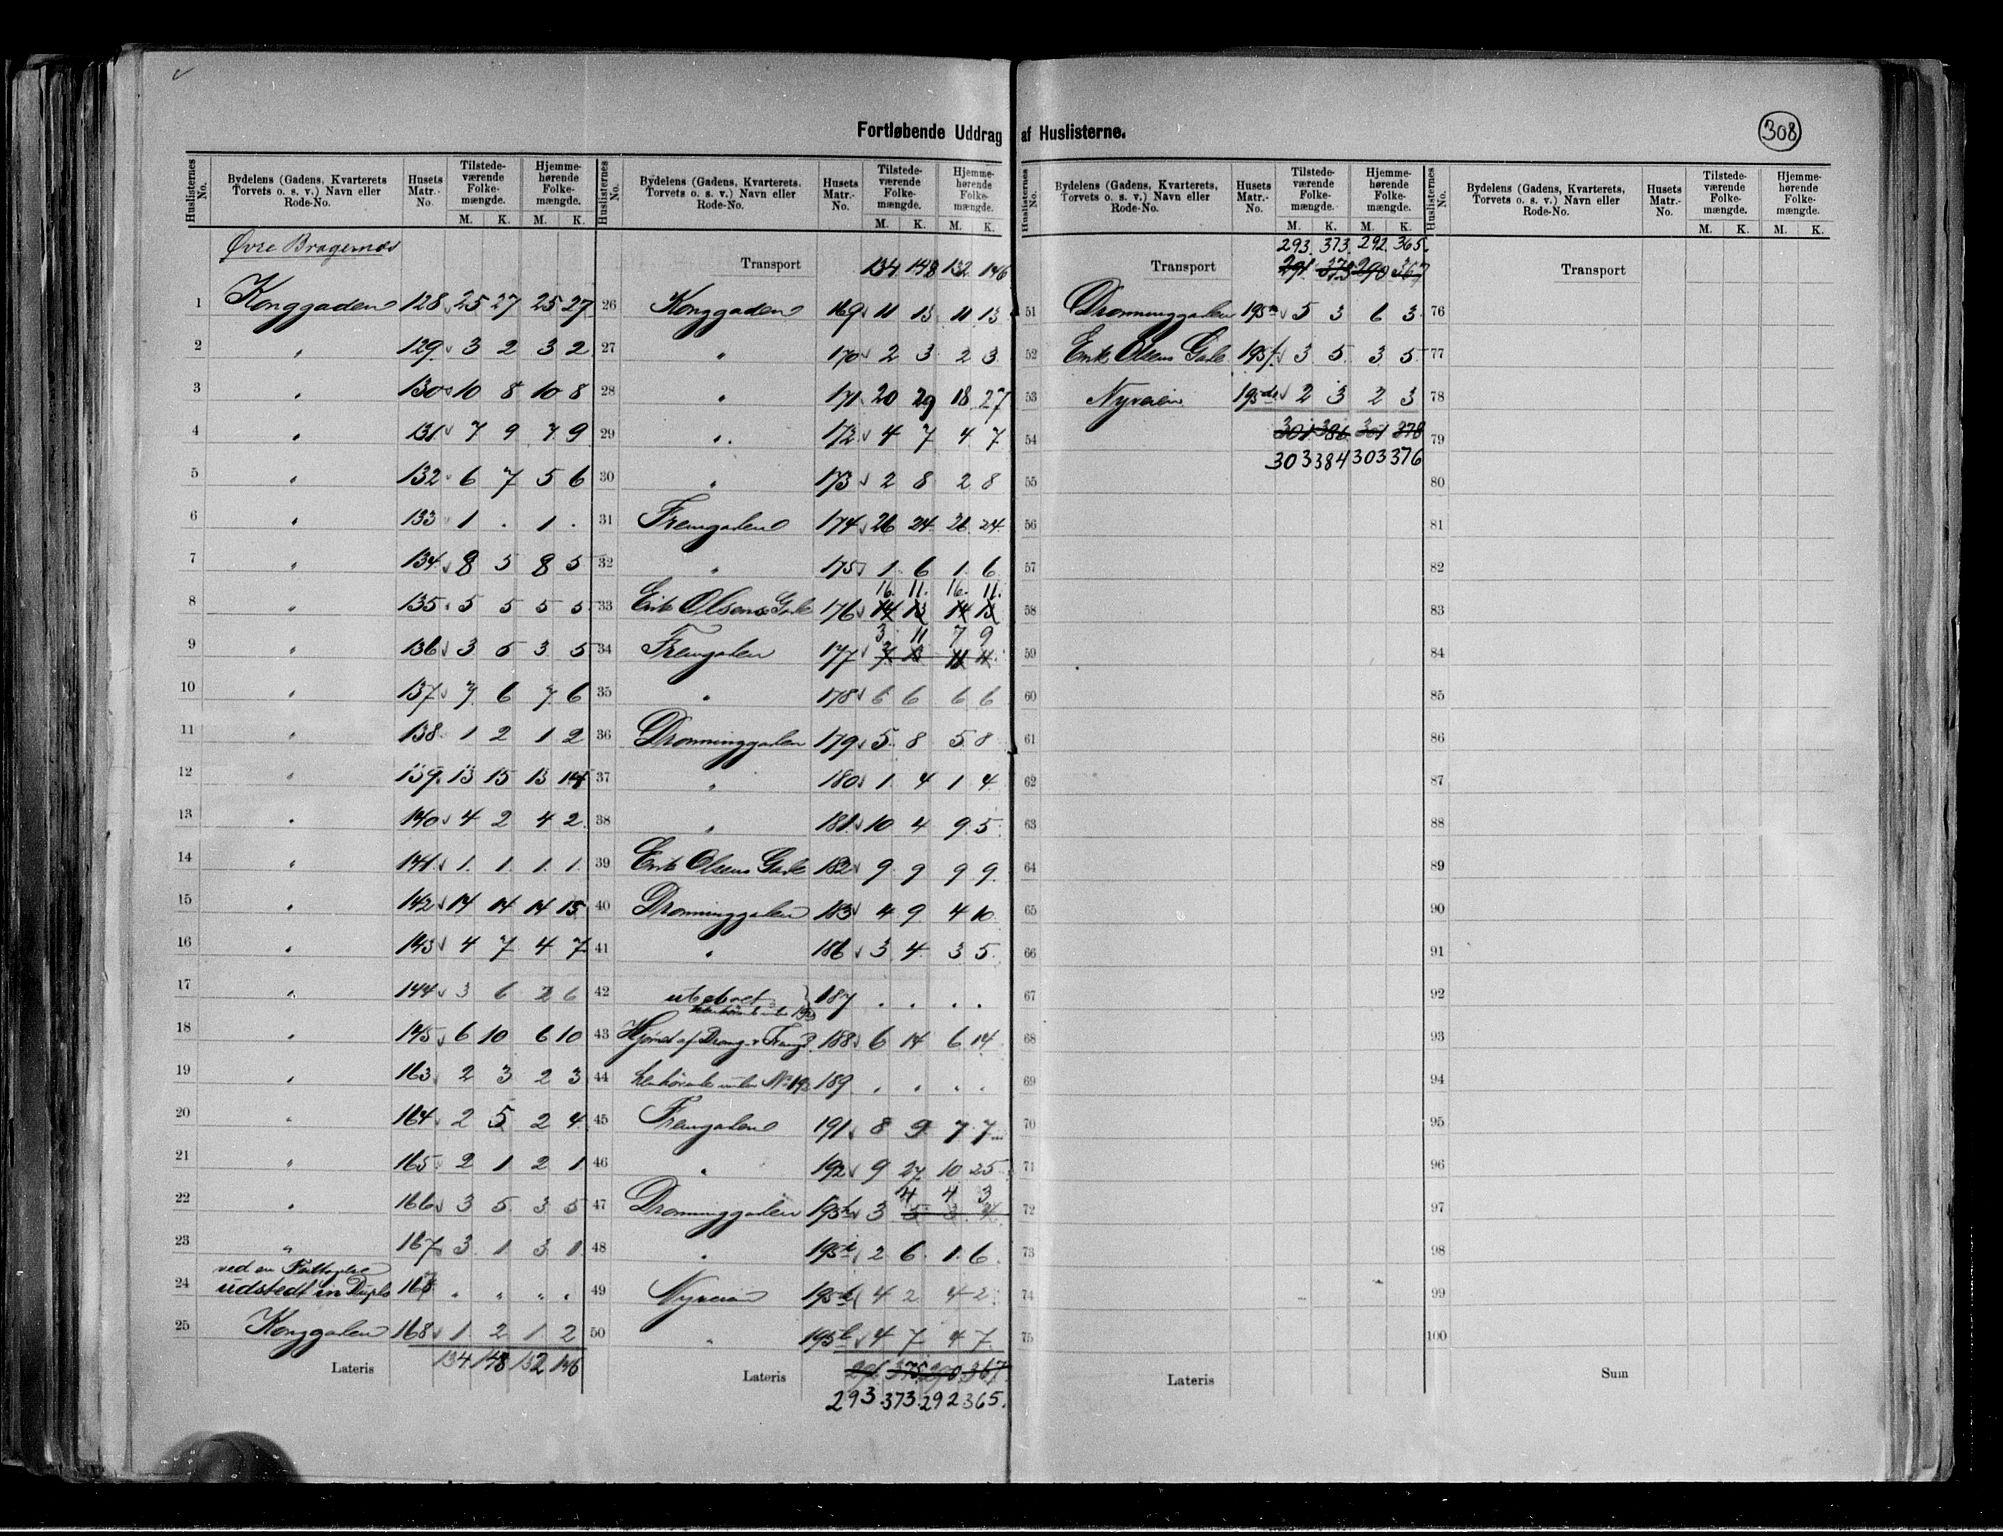 Fortløbende Uddrag af Huslisterne.
308
Huslisternes No. | Bydelens (Gadens, Kvarterets Torvets o. s. v.) Navn eller Rode-No. | Husets Matr.-No. | Tilstedeværende Folkemængde. M. K. | Hjemmehørende Folkemængde. M. K.
Øvre Bragernæs
1 Konggaden 128 25 27 25 27
2 " 129 3 2 3 2
3 " 130 10 8 10 8
4 " 131 7 9 7 9
5 " 132 6 7 5 6
6 " 133 1 . 1 .
7 " 134 8 5 8 5
8 " 135 5 5 5 5
9 " 136 3 5 3 5
10 " 137 7 6 7 6
11 " 138 1 2 1 2
12 " 139 13 15 13 14
13 " 140 4 2 4 2
14 " 141 1 1 1 1
15 " 142 14 14 14 15
16 " 143 4 7 4 7
17 " 144 3 6 2 6
18 " 145 6 10 6 10
19 " 163 2 3 2 3
20 " 164 2 5 2 4
21 " 165 2 1 2 1
22 " 166 3 5 3 5
23 " 167 3 1 3 1
24 ved en Feiltagelse udstedt in Duplo " " " "
25 Konggaden 168 1 2 1 2
Lateris 134 148 132 146
Huslisternes No. | Bydelens (Gadens, Kvarterets, Torvets o. s. v.) Navn eller Rode-No. | Husets Matr.-No. | Tilstedeværende Folkemængde. M. K. | Hjemmehørende Folkemængde. M. K.
Transport 134 148 132 146
26 Konggaden 169 11 13 11 13
27 " 170 2 3 2 3
28 " 171 20 29 18 27
29 " 172 4 7 4 7
30 " 173 2 8 2 8
31 Fremgaden 174 26 24 26 24
32 " 175 1 6 1 6
16. 11. 16. 11.
33 Erik Olsens Gade 176 14 13 14 13
3 11 7 9
34 Fremgaden 177
35 " 178 6 6 6 6
36 Dronninggaden 179 5 8 5 8
37 " 180 1 4 1 4
38 " 181 10 4 9 5
39 Erik Olsens Gade 182 9 9 9 9
40 Dronninggaden 183 4 9 4 10
41 " 186 3 4 3 5
42 ubeboet 187 . . . .
43 Hjørnet af Drong. & Fremgd. 188 6 14 6 14
44 henhørende under No 189 . . . .
45 Fremgaden 191 8 9 7 7
46 " 192 9 27 10 25
4 4 3
47 Dronninggaden 195h 3 5 3 4
48 " 195i 2 6 1 6
49 Nyveien 4 2 4 2
50 " 195b 4 7 4 7
Lateris 291 375 290 367
293. 373. 292 365.
Huslisternes No. | Bydelens (Gadens, Kvarterets, Torvets o. s. v.) Navn eller Rode-No. | Husets Matr.-No. | Tilstedeværende Folkemængde. M. K. | Hjemmehørende Folkemængde. M. K.
293. 373 292 365.
Transport 291 375 290 367
51 Dronninggaden 195a 5 3 6 3
52 Erik Olsens Gade 195f 3 5 3 5
53 Nyveien 2 3 2 3
54 301 386 301 378
303 384 303 376
55
56
57
58
59
60
61
62
63
64
65
66
67
68
69
70
71
72
73
74
75
Lateris
Huslisternes No. | Bydelens (Gadens, Kvarterets, Torvets o. s. v.) Navn eller Rode-No. | Husets Matr.-No. | Tilstedeværende Folkemængde. M. K. | Hjemmehørende Folkemængde. M. K.
Transport
76
77
78
79
80
81
82
83
84
85
86
87
88
89
90
91
92
93
94
95
96
97
98
99
100
Sum